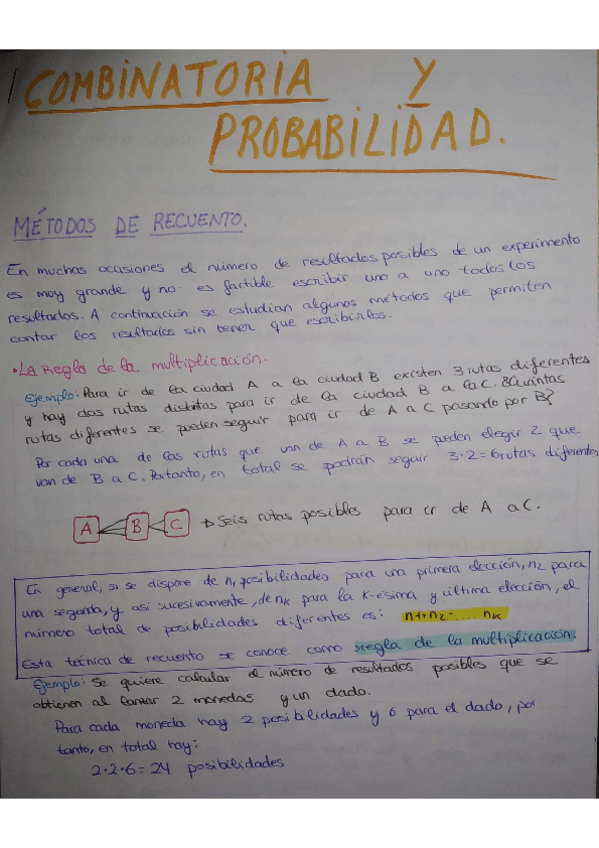 COMBINATORIA Y
PROBABILIDAD.
MÉTODOS DE RECUENTO.
En muchas ocasiones el número de resultados posibles de un experimento
es muy grande y no es factible escribir uno a uno todos los
resultados. A continuación se estudian algunos métodos que permiten
contar los resultados sin tener que escribirlos.
• La Regla de la multiplicación.
Ejemplo: Para ir de la ciudad A a la ciudad B existen 3 rutas diferentes
y hay dos rutas distintas para ir de la ciudad B a la C. ¿Cuántas
rutas diferentes se pueden seguir para ir de A a C pasando por B?
Por cada una de las rutas que van de A a B se pueden elegir 2 que
van de B a C. Por tanto, en total se podrán seguir 3·2=6 rutas diferentes
A B C → Seis rutas posibles para ir de A a C.
En general, si se dispone de n1 posibilidades para una primera elección, n2 para
una segunda, y así sucesivamente, de nk para la k-ésima y última elección, el
número total de posibilidades diferentes es: n1·n2·....nk
Esta técnica de recuento se conoce como regla de la multiplicación.
Ejemplo: Se quiere calcular el número de resultados posibles que se
obtienen al lanzar 2 monedas y un dado.
Para cada moneda hay 2 posibilidades y 6 para el dado, por
tanto, en total hay:
2·2·6=24 posibilidades